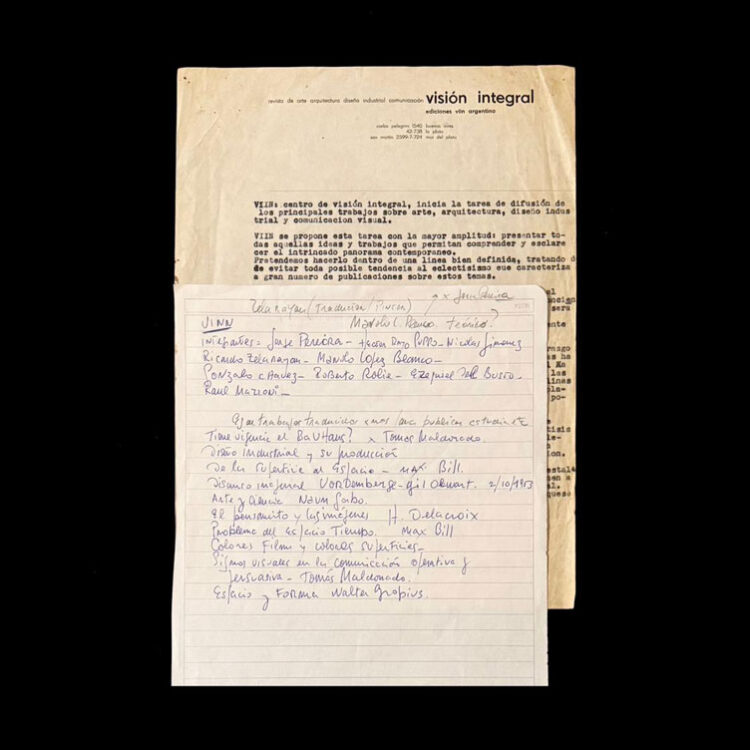 revista de arte arquitectura diseño industrial comunicación visión integral
ediciones viin argentina
carlos pellegrini 1540 buenos aires
42-738 la plata
san martín 2599-7-724 mar del plata
VIIN: centro de visión integral, inicia la tarea de difusión de
los principales trabajos sobre arte, arquitectura, diseño indus
trial y comunicacion visual.
VIIN se propone esta tarea con la mayor amplitud: presentar to-
das aquellas ideas y trabajos que permitan comprender y esclare
cer el intrincado panorama contemporaneo.
Pretendemos hacerlo dentro de una linea bien definida, tratando d
de evitar toda posible tendencia al eclectisismo que caracteriza
a gran numero de publicaciones sobre estos temas.
Zelarayan (Traducción
Manolo L. Blanco teórico?
integrantes = Jorge Pereira - Puppo - Nicolas Jimenez
Ricardo Zelarayan - Manolo Lopez Blanco -
Gonzalo Chavez - Roberto Rollie - Ezequiel del Busto -
Raul Mazzoni -
trabajos traducidos x nos para publicar
Tiene vigencia el BAUHAUS? x Tomas Maldonado.
Diseño Industrial y su producción
De la superficie al Espacio - MAX Bill.
Discurso inaugural Vordemberge-gildewart. 2/10/1953
Arte y Ciencia Naum Gabo.
El pensamiento y las imágenes H. Delacroix
Problema del Espacio Tiempo. Max Bill
Colores Film y colores superficies -
Signos visuales en la comunicación operativa y
persuasiva - Tomás Maldonado.
Espacio y Forma Walter Gropius.